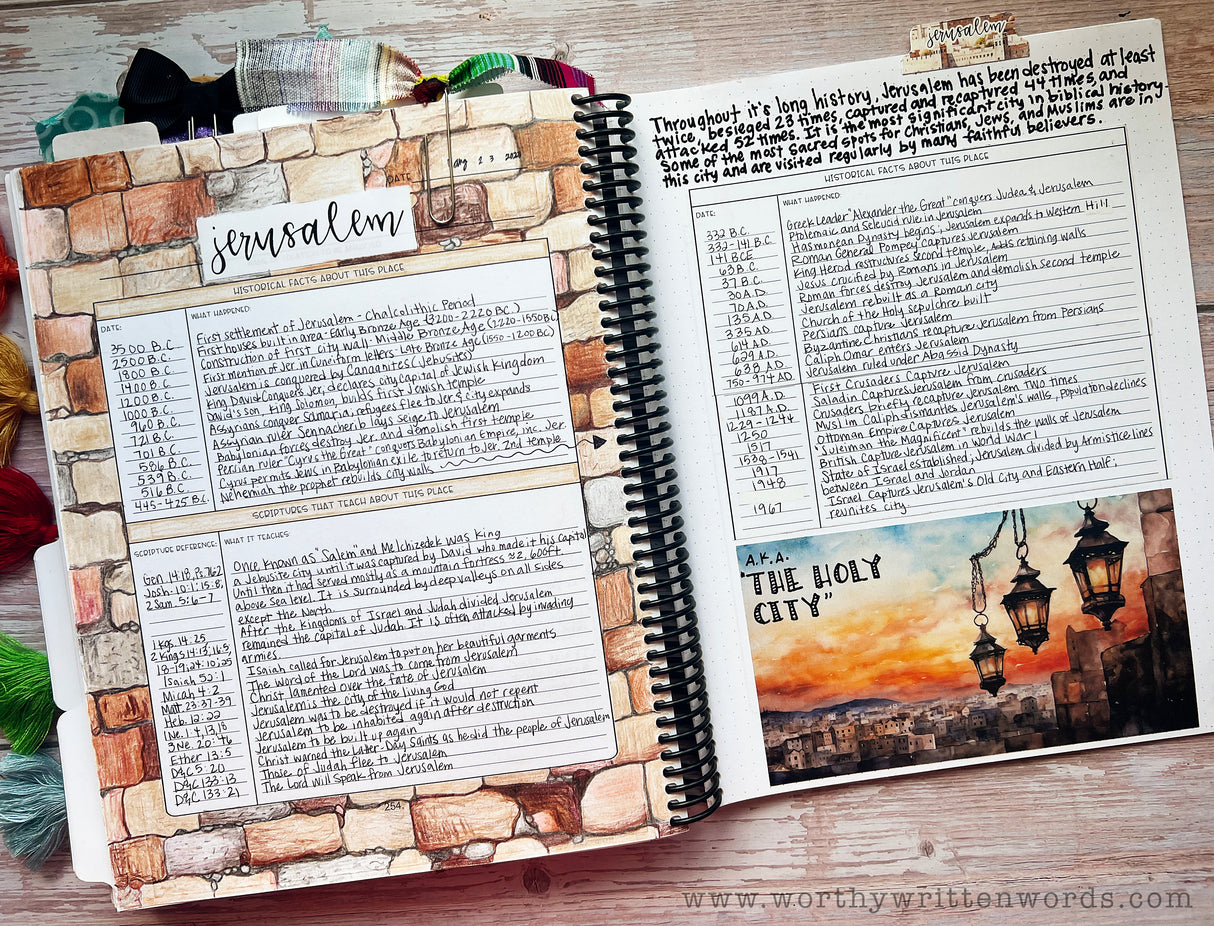 jerusalem
DATE
HISTORICAL FACTS ABOUT THIS PLACE
DATE: WHAT HAPPENED:
3500 B.C. First settlement of Jerusalem - Chalcolithic Period
2500 B.C. First houses built in area - Early Bronze Age (3200-2220 BC)
1800 B.C. Construction of first city wall - Middle Bronze Age (2220-1550 BC)
1400 B.C. First mention of Jer. in Cuneiform letters - Late Bronze Age (1550-1200 BC)
1200 B.C. Jerusalem is conquered by Canaanites (Jebusites)
1000 B.C. King David Conquers Jer, declares city capital of Jewish Kingdom
960 B.C. David's son, King Solomon, builds first Jewish temple
721 B.C. Assyrians conquer Samaria, refugees flee to Jer & city expands
701 B.C. Assyrian ruler Sennacherib lays seige to Jerusalem
586 B.C. Babylonian forces destroy Jer. and demolish first temple
539 B.C. Persian ruler "Cyrus the Great" conquers Babylonian Empire, inc. Jer.
516 B.C. Cyrus permits Jews in Babylonian exile to return to Jer. 2nd temple
445-425 B.C. Nehemiah the prophet rebuilds city walls
SCRIPTURES THAT TEACH ABOUT THIS PLACE
SCRIPTURE REFERENCE: WHAT IT TEACHES:
Gen. 14:18, Ps. 76:2 Once known as "Salem" and Melchizedek was King
Josh. 10:1; 15:8; a Jebusite City until it was captured by David who made it his capital
2 Sam. 5:6-7 Until then it had served mostly as a mountain fortress ≈ 2,600ft.
above Sea level. It is surrounded by deep valleys on all sides
except the North
1 Kgs. 14:25 After the Kingdoms of Israel and Judah divided Jerusalem
2 Kings 14:13, 16:5, remained the capital of Judah It is often attacked by invading
18-19, 24:10; 25 armies.
Isaiah 52:1 Isaiah called for Jerusalem to put on her beautiful garments
Micah 4:2 The word of the Lord was to come from Jerusalem
Matt. 23:37-39 Christ lamented over the fate of Jerusalem
Heb. 12:22 Jerusalem is the city of the living God
1 Ne. 1:4, 13, 18 Jerusalem was to be destroyed if it would not repent
3 Ne. 20:46 Jerusalem to be inhabited again after destruction
Ether 13:5 Jerusalem to be built up again
D&C 5:20 Christ warned the Latter-Day Saints as he did the people of Jerusalem
D&C 133:13 Those of Judah flee to Jerusalem
D&C 133:21 The Lord will speak from Jerusalem
254
jerusalem
Throughout it's long history, Jerusalem has been destroyed at least
twice, besieged 23 times, captured and recaptured 44 times, and
attacked 52 times. It is the most significant city in biblical history.
Some of the most sacred spots for Christians, Jews, and Muslims are in
this city and are visited regularly by many faithful believers.
HISTORICAL FACTS ABOUT THIS PLACE
DATE: WHAT HAPPENED:
332 B.C. Greek Leader "Alexander the Great" conquers Judea & Jerusalem
332-141 B.C. Ptolemaic and Seleucid rule in Jerusalem
141 BCE Hasmonean Dynasty begins; Jerusalem expands to Western Hill
63 B.C. Roman General Pompey captures Jerusalem
37 B.C. King Herod restructures second temple, adds retaining walls
30 A.D. Jesus crucified by Romans in Jerusalem
70 A.D. Roman forces destroy Jerusalem and demolish second temple
135 A.D. Jerusalem rebuilt as a Roman city
335 A.D. Church of the Holy sepulchre built
614 A.D. Persians capture Jerusalem
629 A.D. Byzantine Christians recapture Jerusalem from Persians
638 A.D. Caliph Omar enters Jerusalem
750-974 AD Jerusalem ruled under Abassid Dynasty
1099 A.D. First Crusaders Capture Jerusalem
1187 A.D. Saladin Captures Jerusalem from crusaders
1229-1244 Crusaders briefly recapture Jerusalem TWO times
1250 Muslim Caliph dismantles Jerusalem's walls, Population declines
1517 Ottoman Empire Captures Jerusalem
1538-1541 "Suleiman the Magnificent" rebuilds the walls of Jerusalem
1917 British Capture Jerusalem in World War 1
1948 State of Israel established; Jerusalem divided by Armistice lines
between Israel and Jordan
1967 Israel Captures Jerusalem's Old City and Eastern Half;
reunites city.
A.K.A.
"THE HOLY
CITY"
www.worthywrittenwords.com